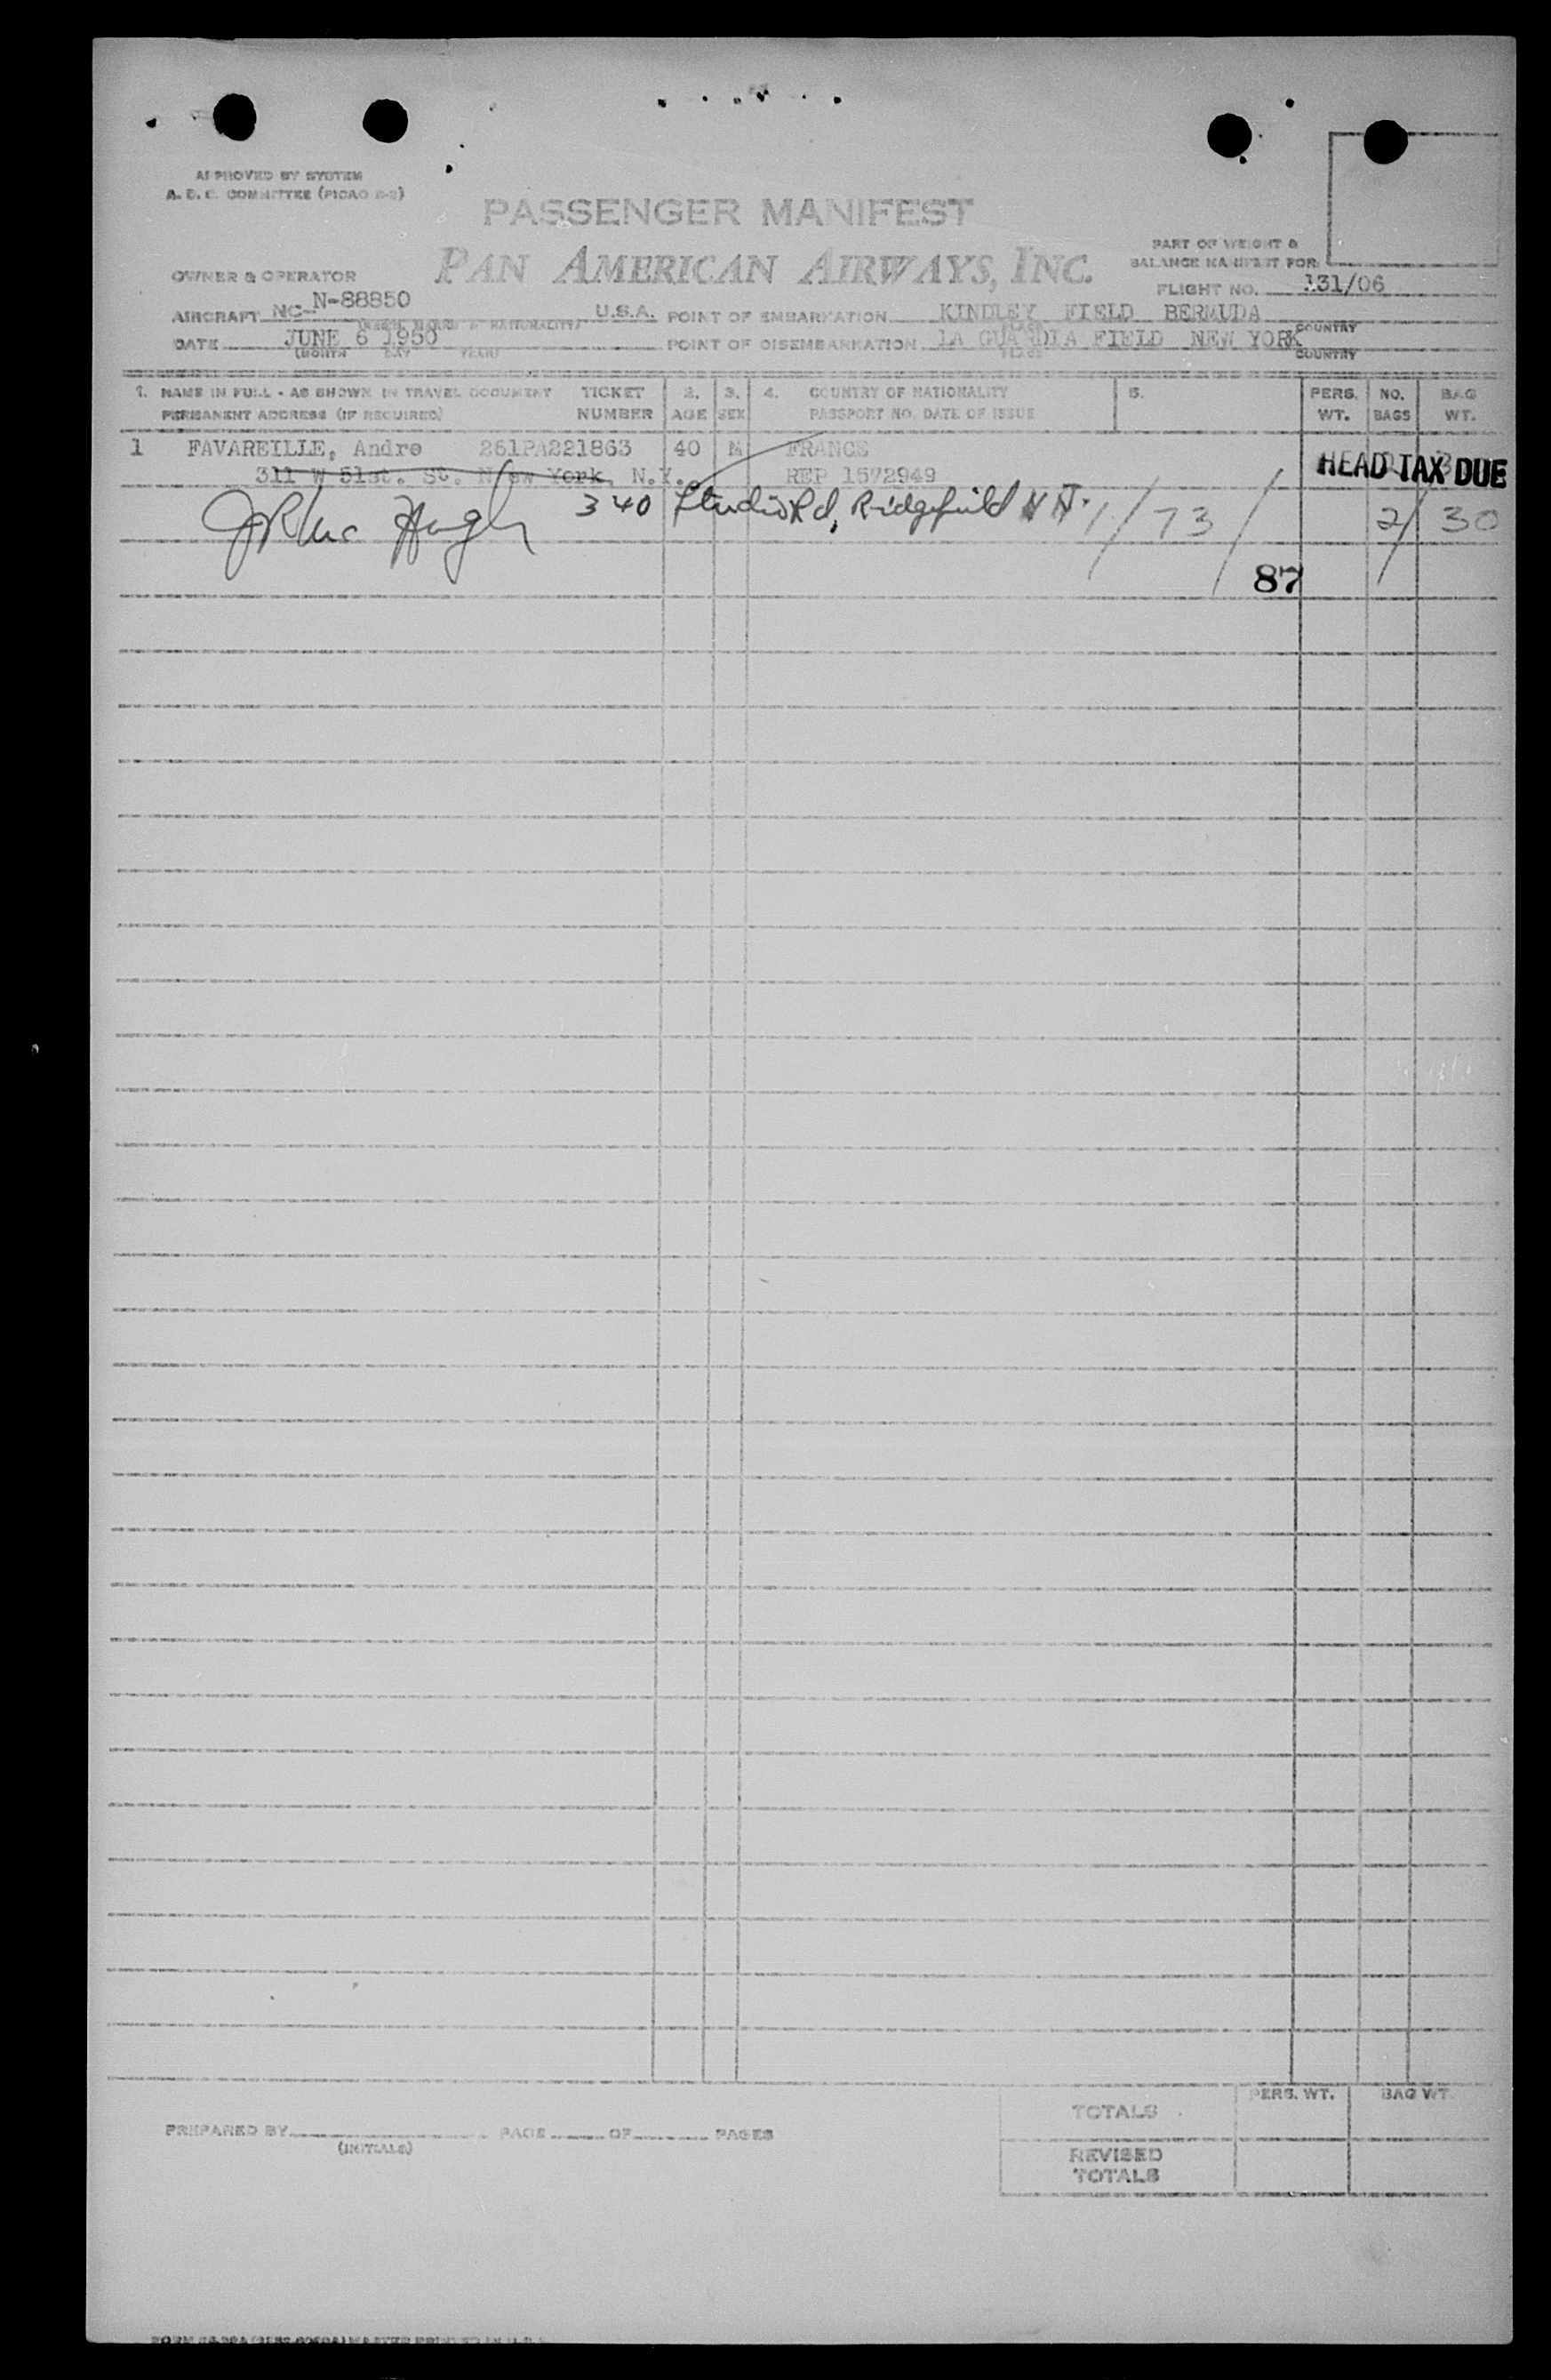 APPROVED BY SYSTEM
A. D. C. COMMITTEE (PICAO 2-2)
PASSENGER MANIFEST
PAN AMERICAN AIRWAYS, INC.
PART OF WEIGHT &
BALANCE MANIFEST FOR:
OWNER & OPERATOR
FLIGHT NO. 131/06
AIRCRAFT NC-N-88850 U.S.A. POINT OF EMBARKATION KINDLEY FIELD BERMUDA
COUNTRY
DATE JUNE 6 1950 POINT OF DISEMBARKATION LA GUARDIA FIELD NEW YORK
(MONTH DAY YEAR) PLACE COUNTRY
1. NAME IN FULL - AS SHOWN IN TRAVEL DOCUMENT TICKET 2. 3. 4. COUNTRY OF NATIONALITY 5. PERS. NO. BAG
PERMANENT ADDRESS (IF REQUIRED) NUMBER AGE SEX PASSPORT NO. DATE OF ISSUE WT. BAGS WT.
1 FAVAREILLE, Andre 261PA221863 40 M FRANCE
311 W 51st. St. New York, N.Y. REP 1572949 HEAD TAX DUE
340 Studio Rd, Ridgefield N J. 1/73/ 2/ 30
87
TOTALS PERS. WT. BAG WT.
PREPARED BY PAGE OF PAGES
(INITIALS)
REVISED
TOTALS